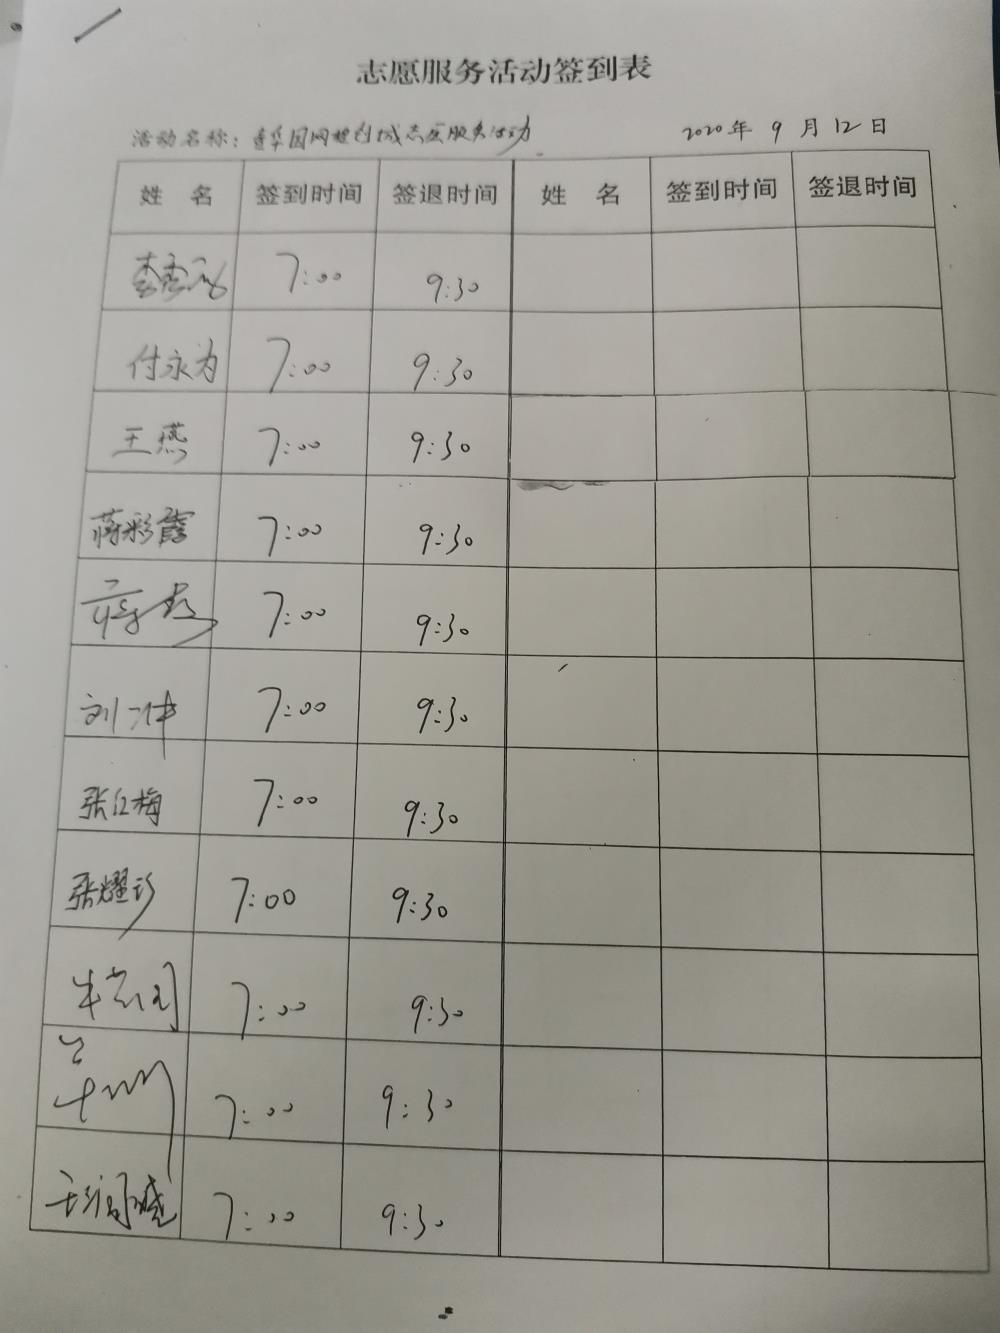 志愿服务活动签到表
活动名称：园网格创城志愿服务活动 2020年9月12日
姓 名 签到时间 签退时间 姓 名 签到时间 签退时间
7:00 9:30
付永为 7:00 9:30
王燕 7:00 9:30
蒋彩霞 7:00 9:30
蒋 7:00 9:30
刘 7:00 9:30
张红梅 7:00 9:30
张耀珍 7:00 9:30
7:00 9:30
7:00 9:30
7:00 9:30